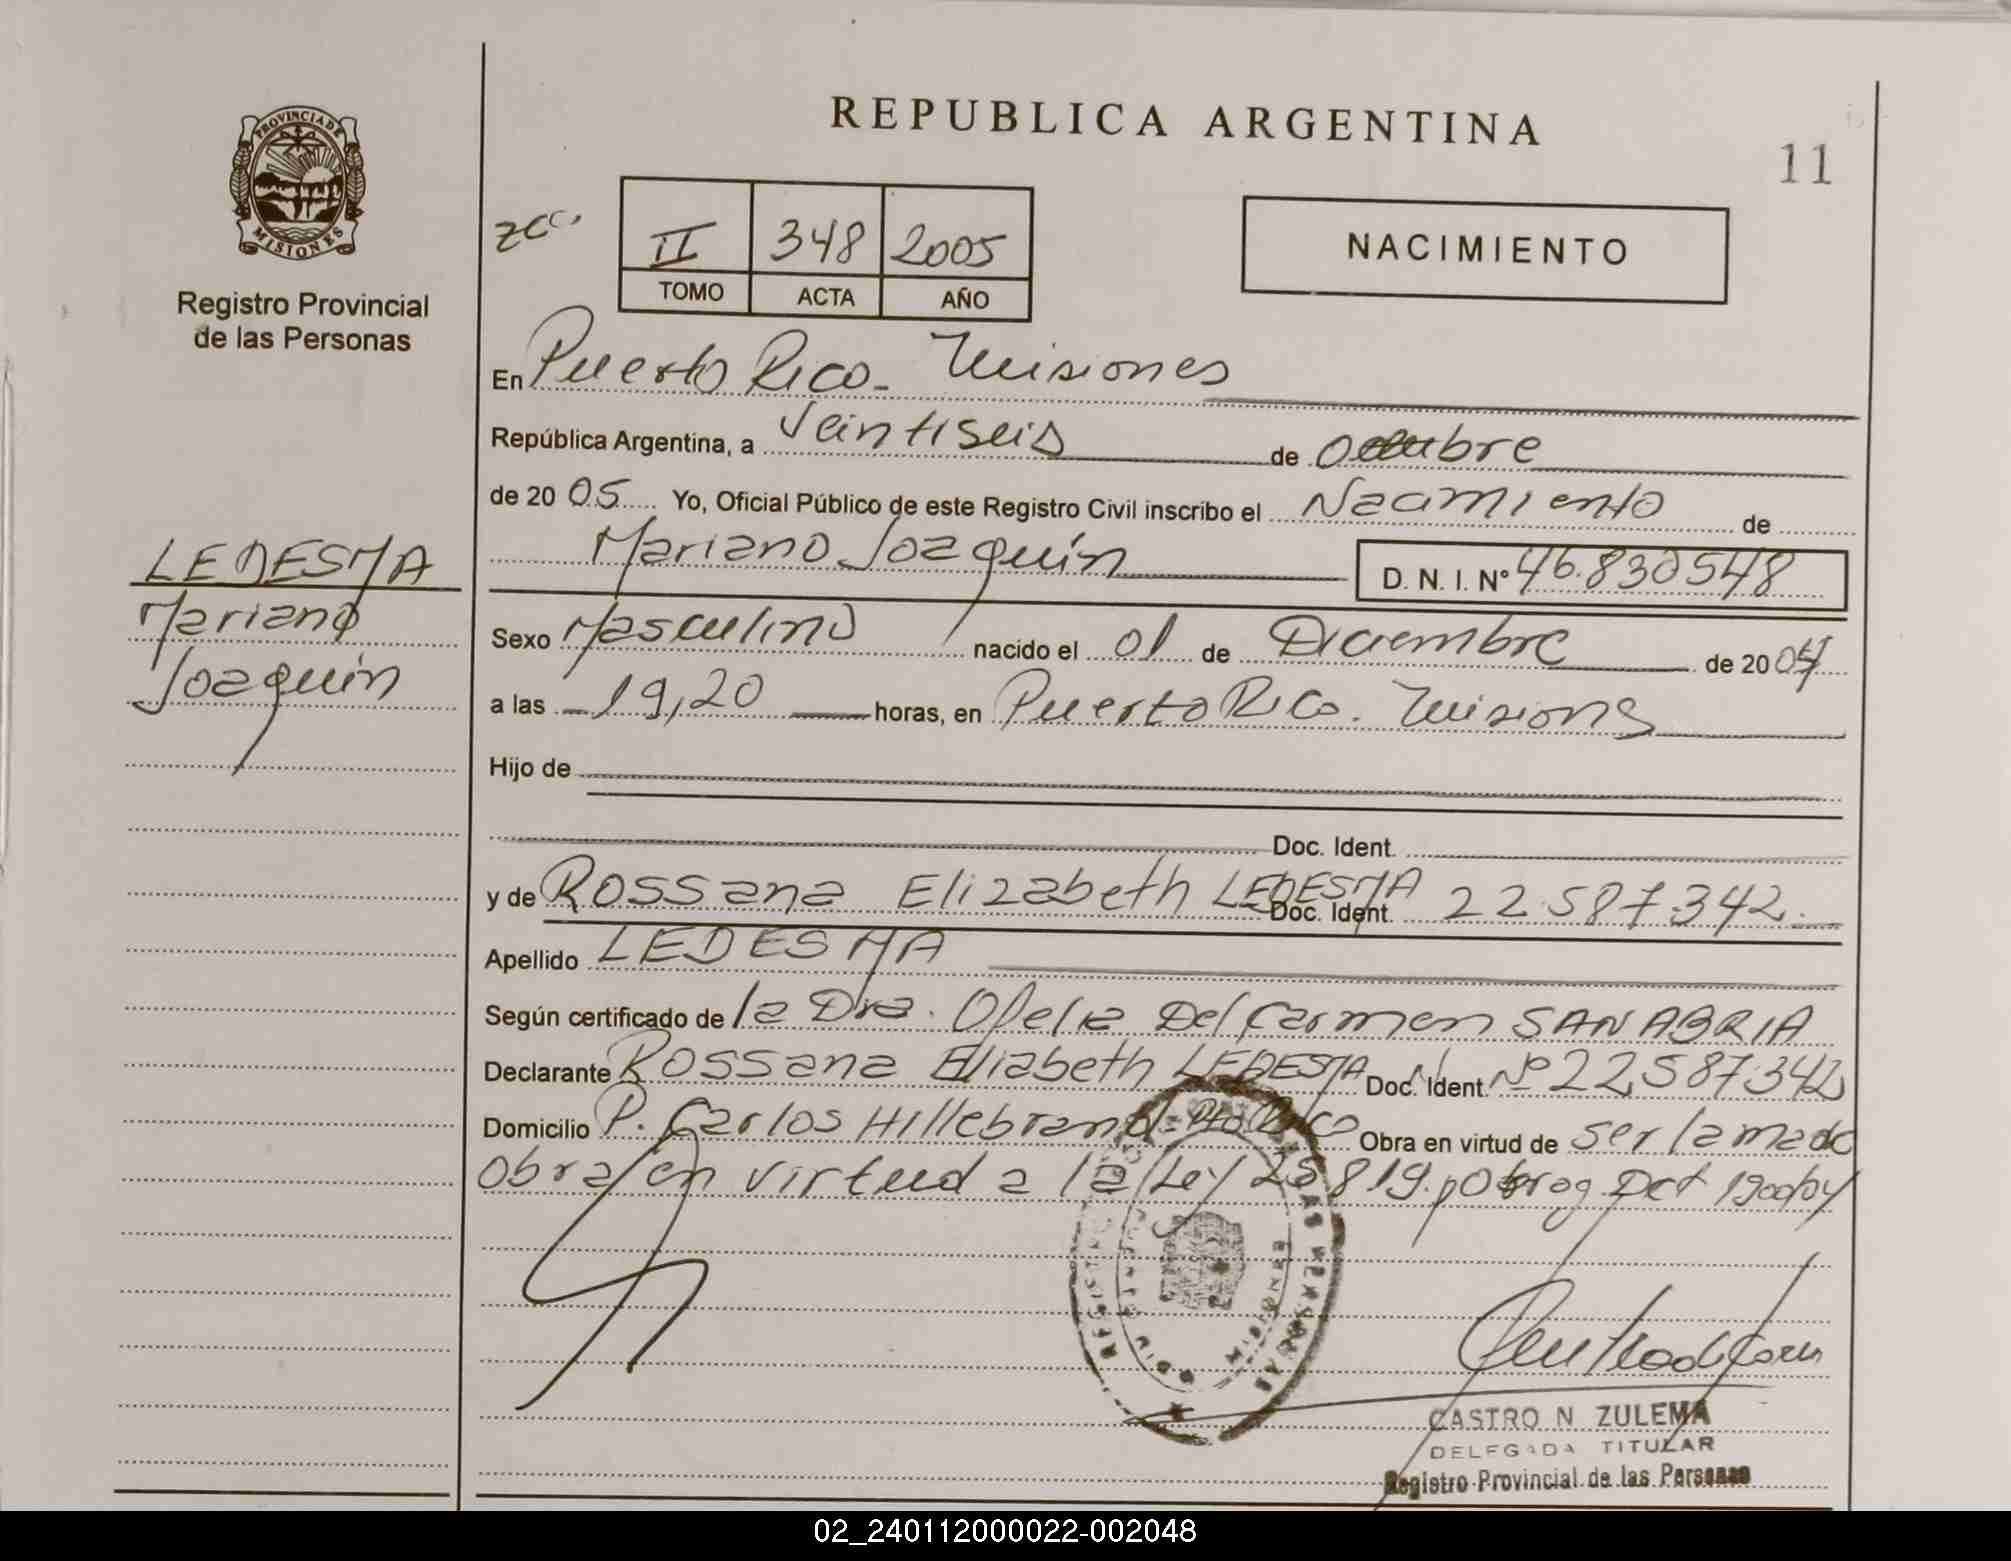 REPUBLICA ARGENTINA
11
PROVINCIA DE MISIONES
Registro Provincial
de las Personas
II 348 2005
TOMO ACTA AÑO
NACIMIENTO
En Puerto Rico - Misiones
República Argentina, a Veintiseis de Octubre
de 20 05 Yo, Oficial Público de este Registro Civil inscribo el Nacimiento de
Mariano Joaquín D. N. I. Nº 46.830548
LEDESMA
Mariano
Joaquín
Sexo Masculino nacido el 01 de Diciembre de 20 04
a las 19,20 horas, en Puerto Rico. Misiones
Hijo de
Doc. Ident.
y de Rossana Elizabeth LEDESMA Doc. Ident. 22.587.342.
Apellido LEDESMA
Según certificado de la Dra. Ofelia Del Carmen SANABRIA
Declarante Rossana Elizabeth LEDESMA Doc. Ident. Nº 22.587.342
Domicilio P. Carlos Hillebrand. Pto Rico Obra en virtud de ser la madre
obra en virtud a la Ley 25819. prorrog. Dct 1900/04
REGISTRO DE LAS PERSONAS
MISIONES
CASTRO N. ZULEMA
DELEGADA TITULAR
Registro Provincial de las Personas
02_240112000022-002048